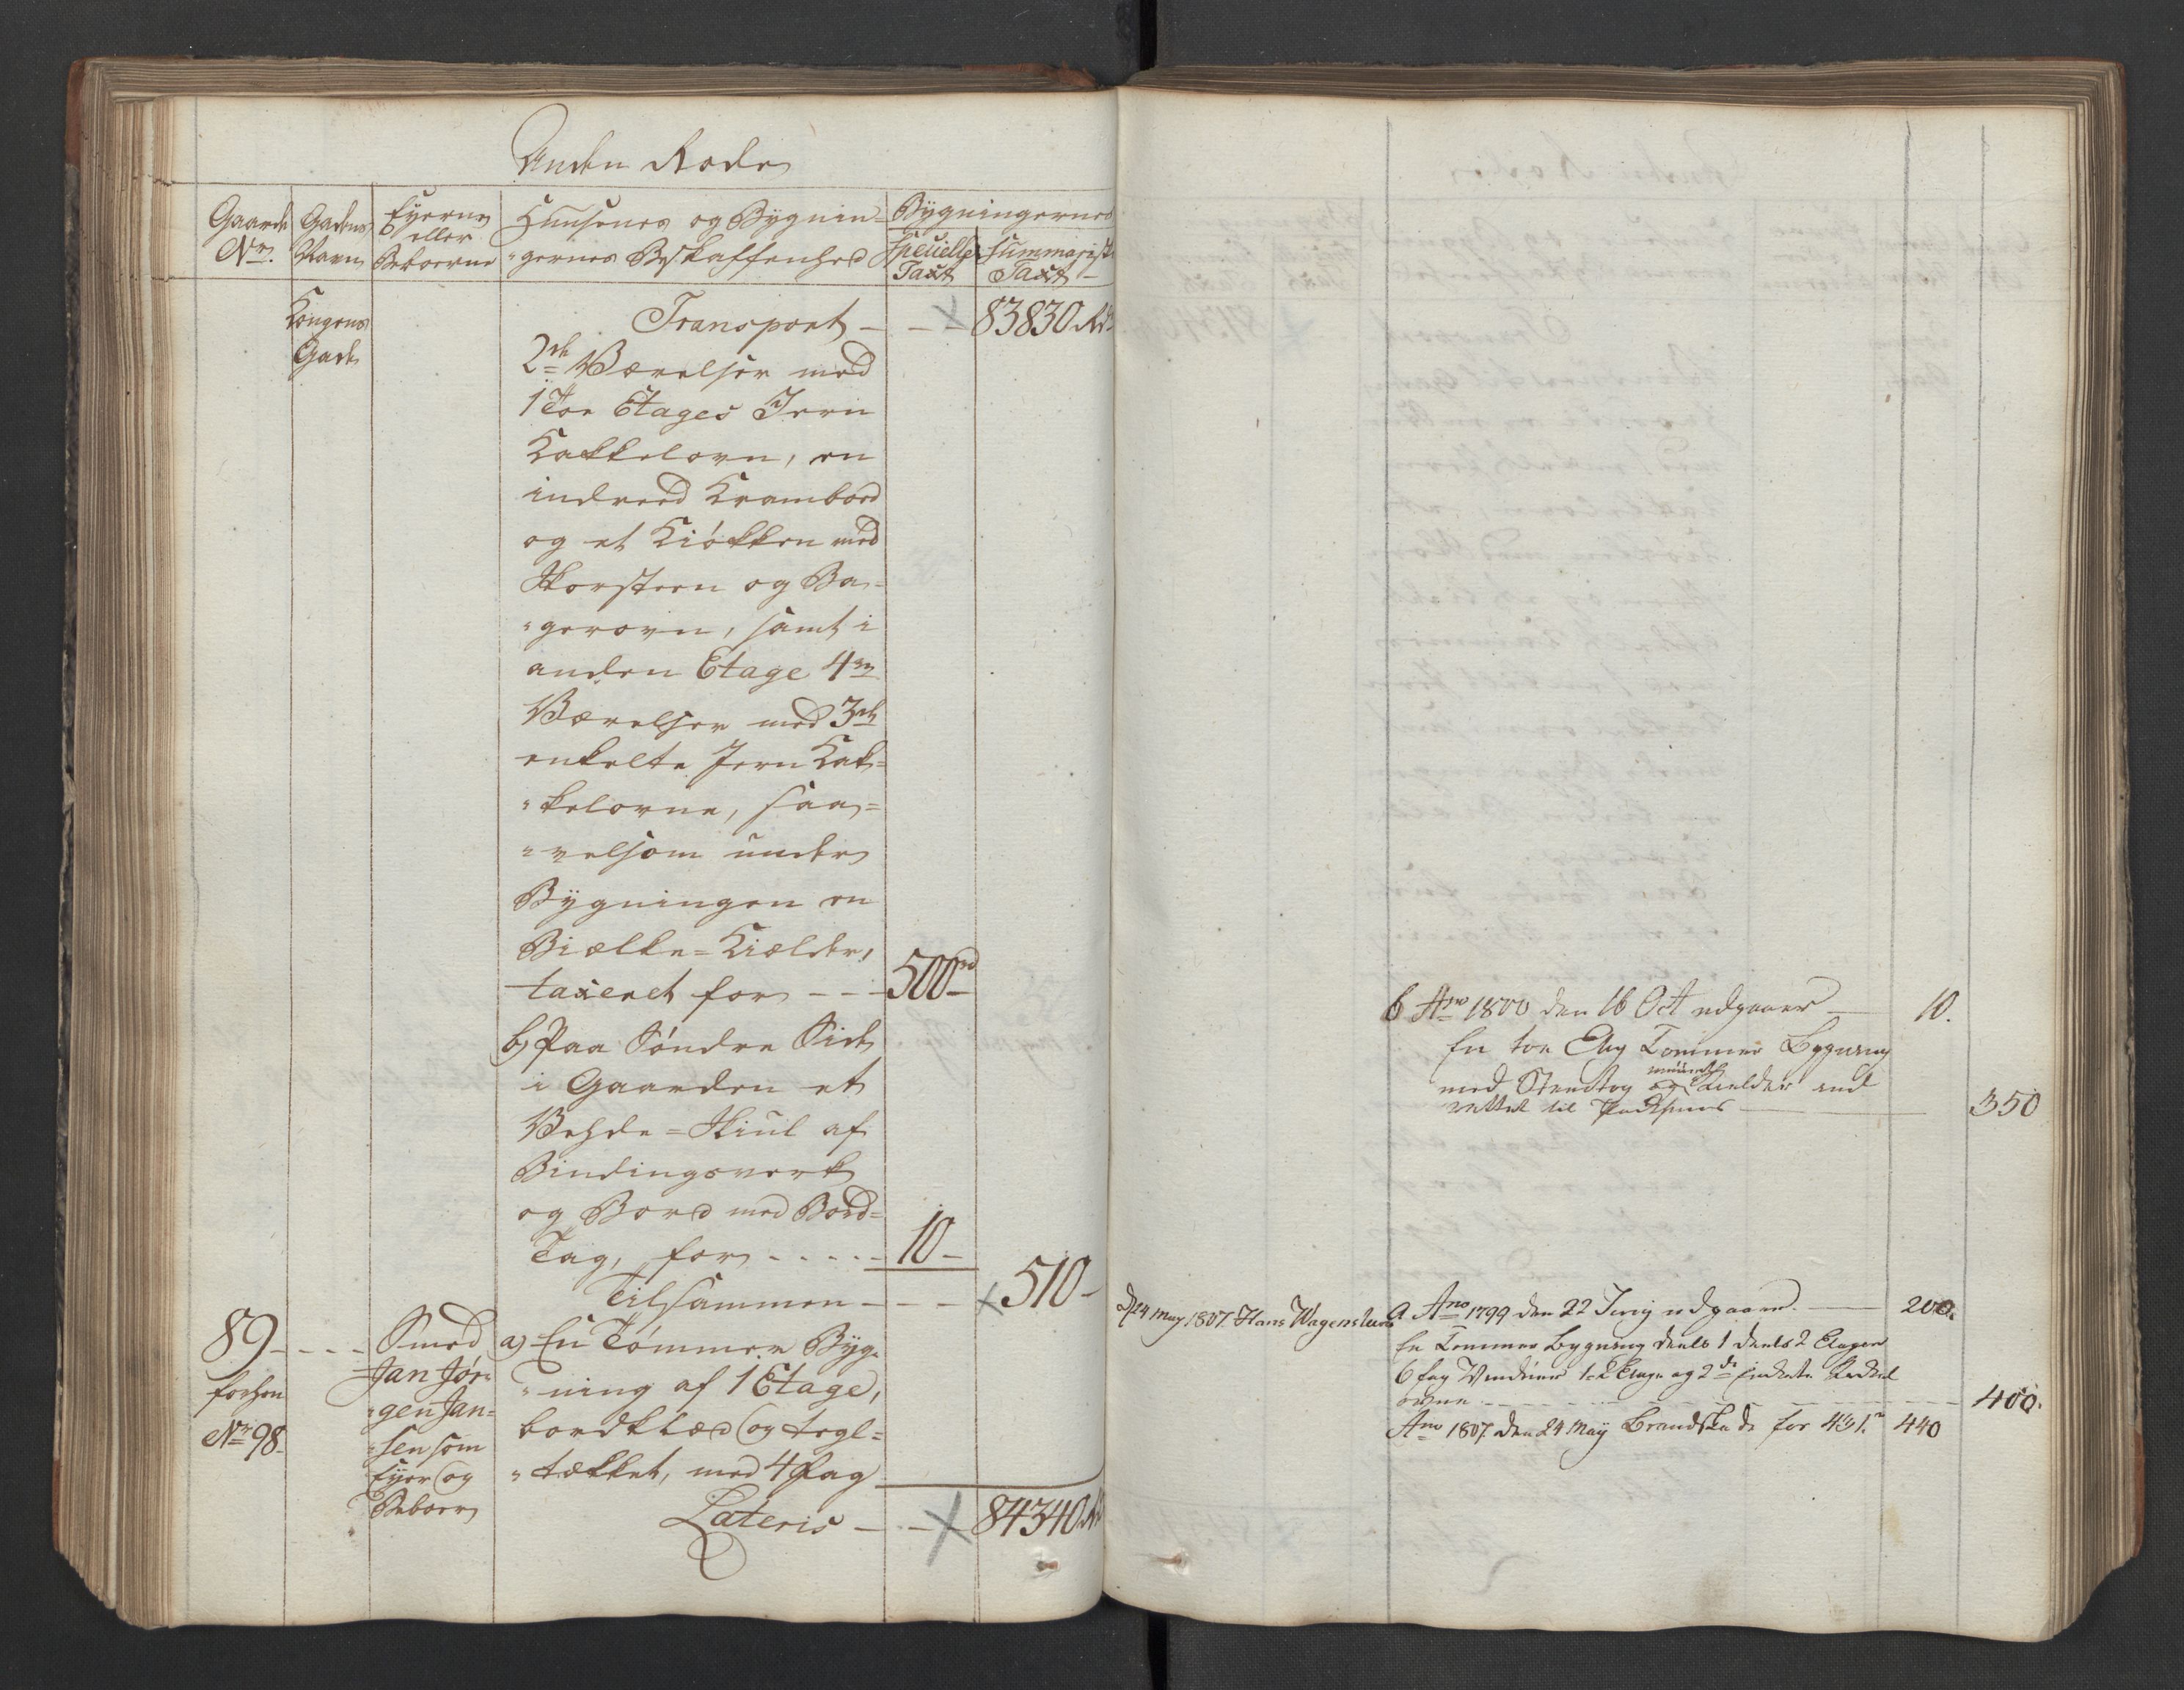 Anden Rode
Gaarde No.
Gadens Navn
Eyerne eller Beboerne
Huusenes og Bÿgnin=
"gernes Beskaffenhed
Bÿgningernes
Specielle Taxt
Summariske Taxt
Kongens
Gade
Transport - - - 83830 Rd
2de Værelser med
1 Toe Etages Jern
Kakkelovn, en
indreed Krambod
og et Kiøkken med
Skorsteen og Ba=
"gerovn, samt i
anden Etage 4re
Værelser med 3de
enkelte Jern Kak=
"kelovne, saa=
"velsom under
Bÿgningen en
Biælke=Kielder,
taxeret for - - - 500rd
b) Paa Søndre Side
i Gaarden et
Vehde=Skiul af
Bindingsverk
og Bord med Bord=
Tag, for - - - - - 10 -
Tilsammen - - - 510 -
89 - - - -
forhen
No 98.
Smed
Jan Jør=
"gen Jan=
"sen som
Eyer og
Beboer
a) En Tømmer Byg=
"ning af 1 Etage,
bordklæd og tegl=
"tækket, med 4 Fag
Lateris - - - 84340 Rd
b Ano 1800 den 16 Oct udgaaer - 10.
En toe Etag Tømmer Bygning
med Steentag og muuret Kielder ind
rettet til Pakhuus - 350
D. 24 May 1807. Hans Wagensteen
a Ano 1799 den 22 Junij udgaaer. - 200.
En Tømmer Bygning deels 1 deels 2 Etager
6 fag Vinduer 1 2 Etage og 2de Enkelte Kackel
ovne - 400.
Ano 1807. den 24 May Brandskade for 431. 440